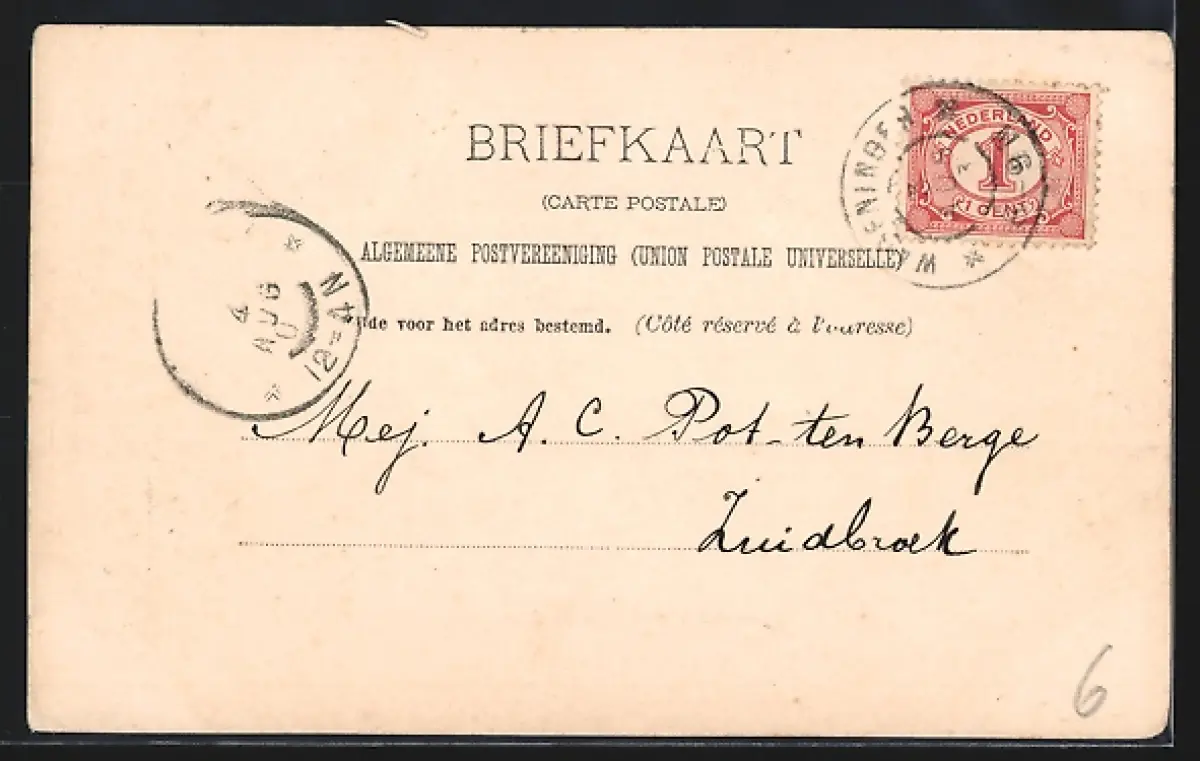 BRIEFKAART
(CARTE POSTALE)
ALGEMEENE POSTVEREENIGING (UNION POSTALE UNIVERSELLE)
voor het adres bestemd. (Côté réservé à
NEDERLAND
1
CENT
WAGENINGEN
4
AUG
12-4N
Mej. A. C. Pot-ten Berge
Zuidbroek
6